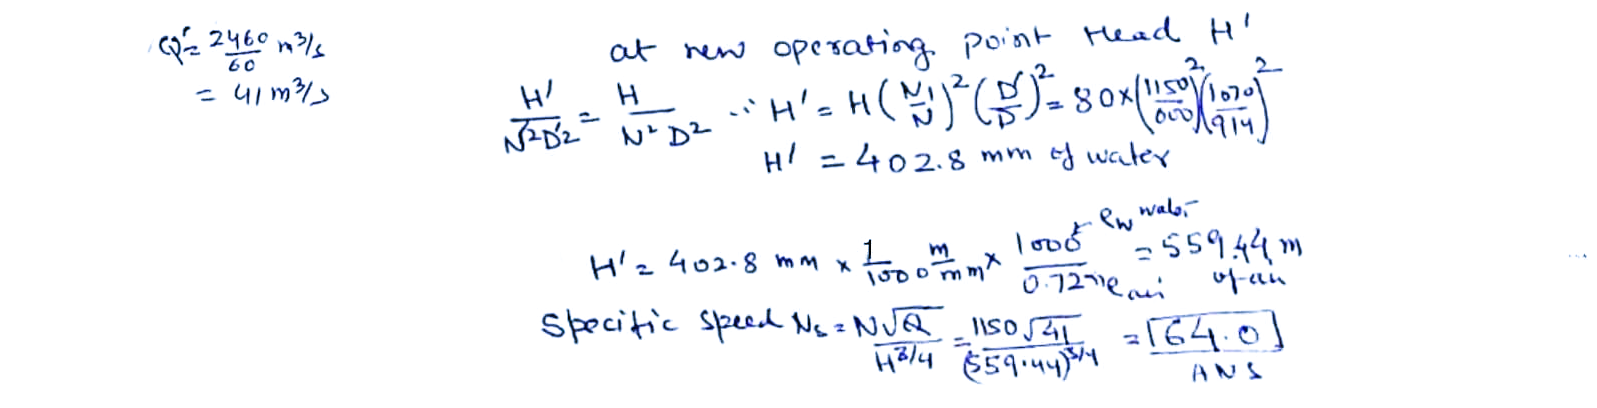 Q' = 2460/60 m³/s
= 41 m³/s
at new operating point Head H'
H'/N'²D'² = H/N²D² ∴ H' = H(N1/N)²(D'/D)² = 80×(1150/600)²(1070/914)²
H' = 402.8 mm of water
H' = 402.8 mm × 1/1000 m/mm × 1000/0.72 = 559.44 m of air
ρw water
ρ air
Specific speed Ns = N√Q/H^3/4 = 1150√41/(559.44)^3/4 = 64.0
ANS